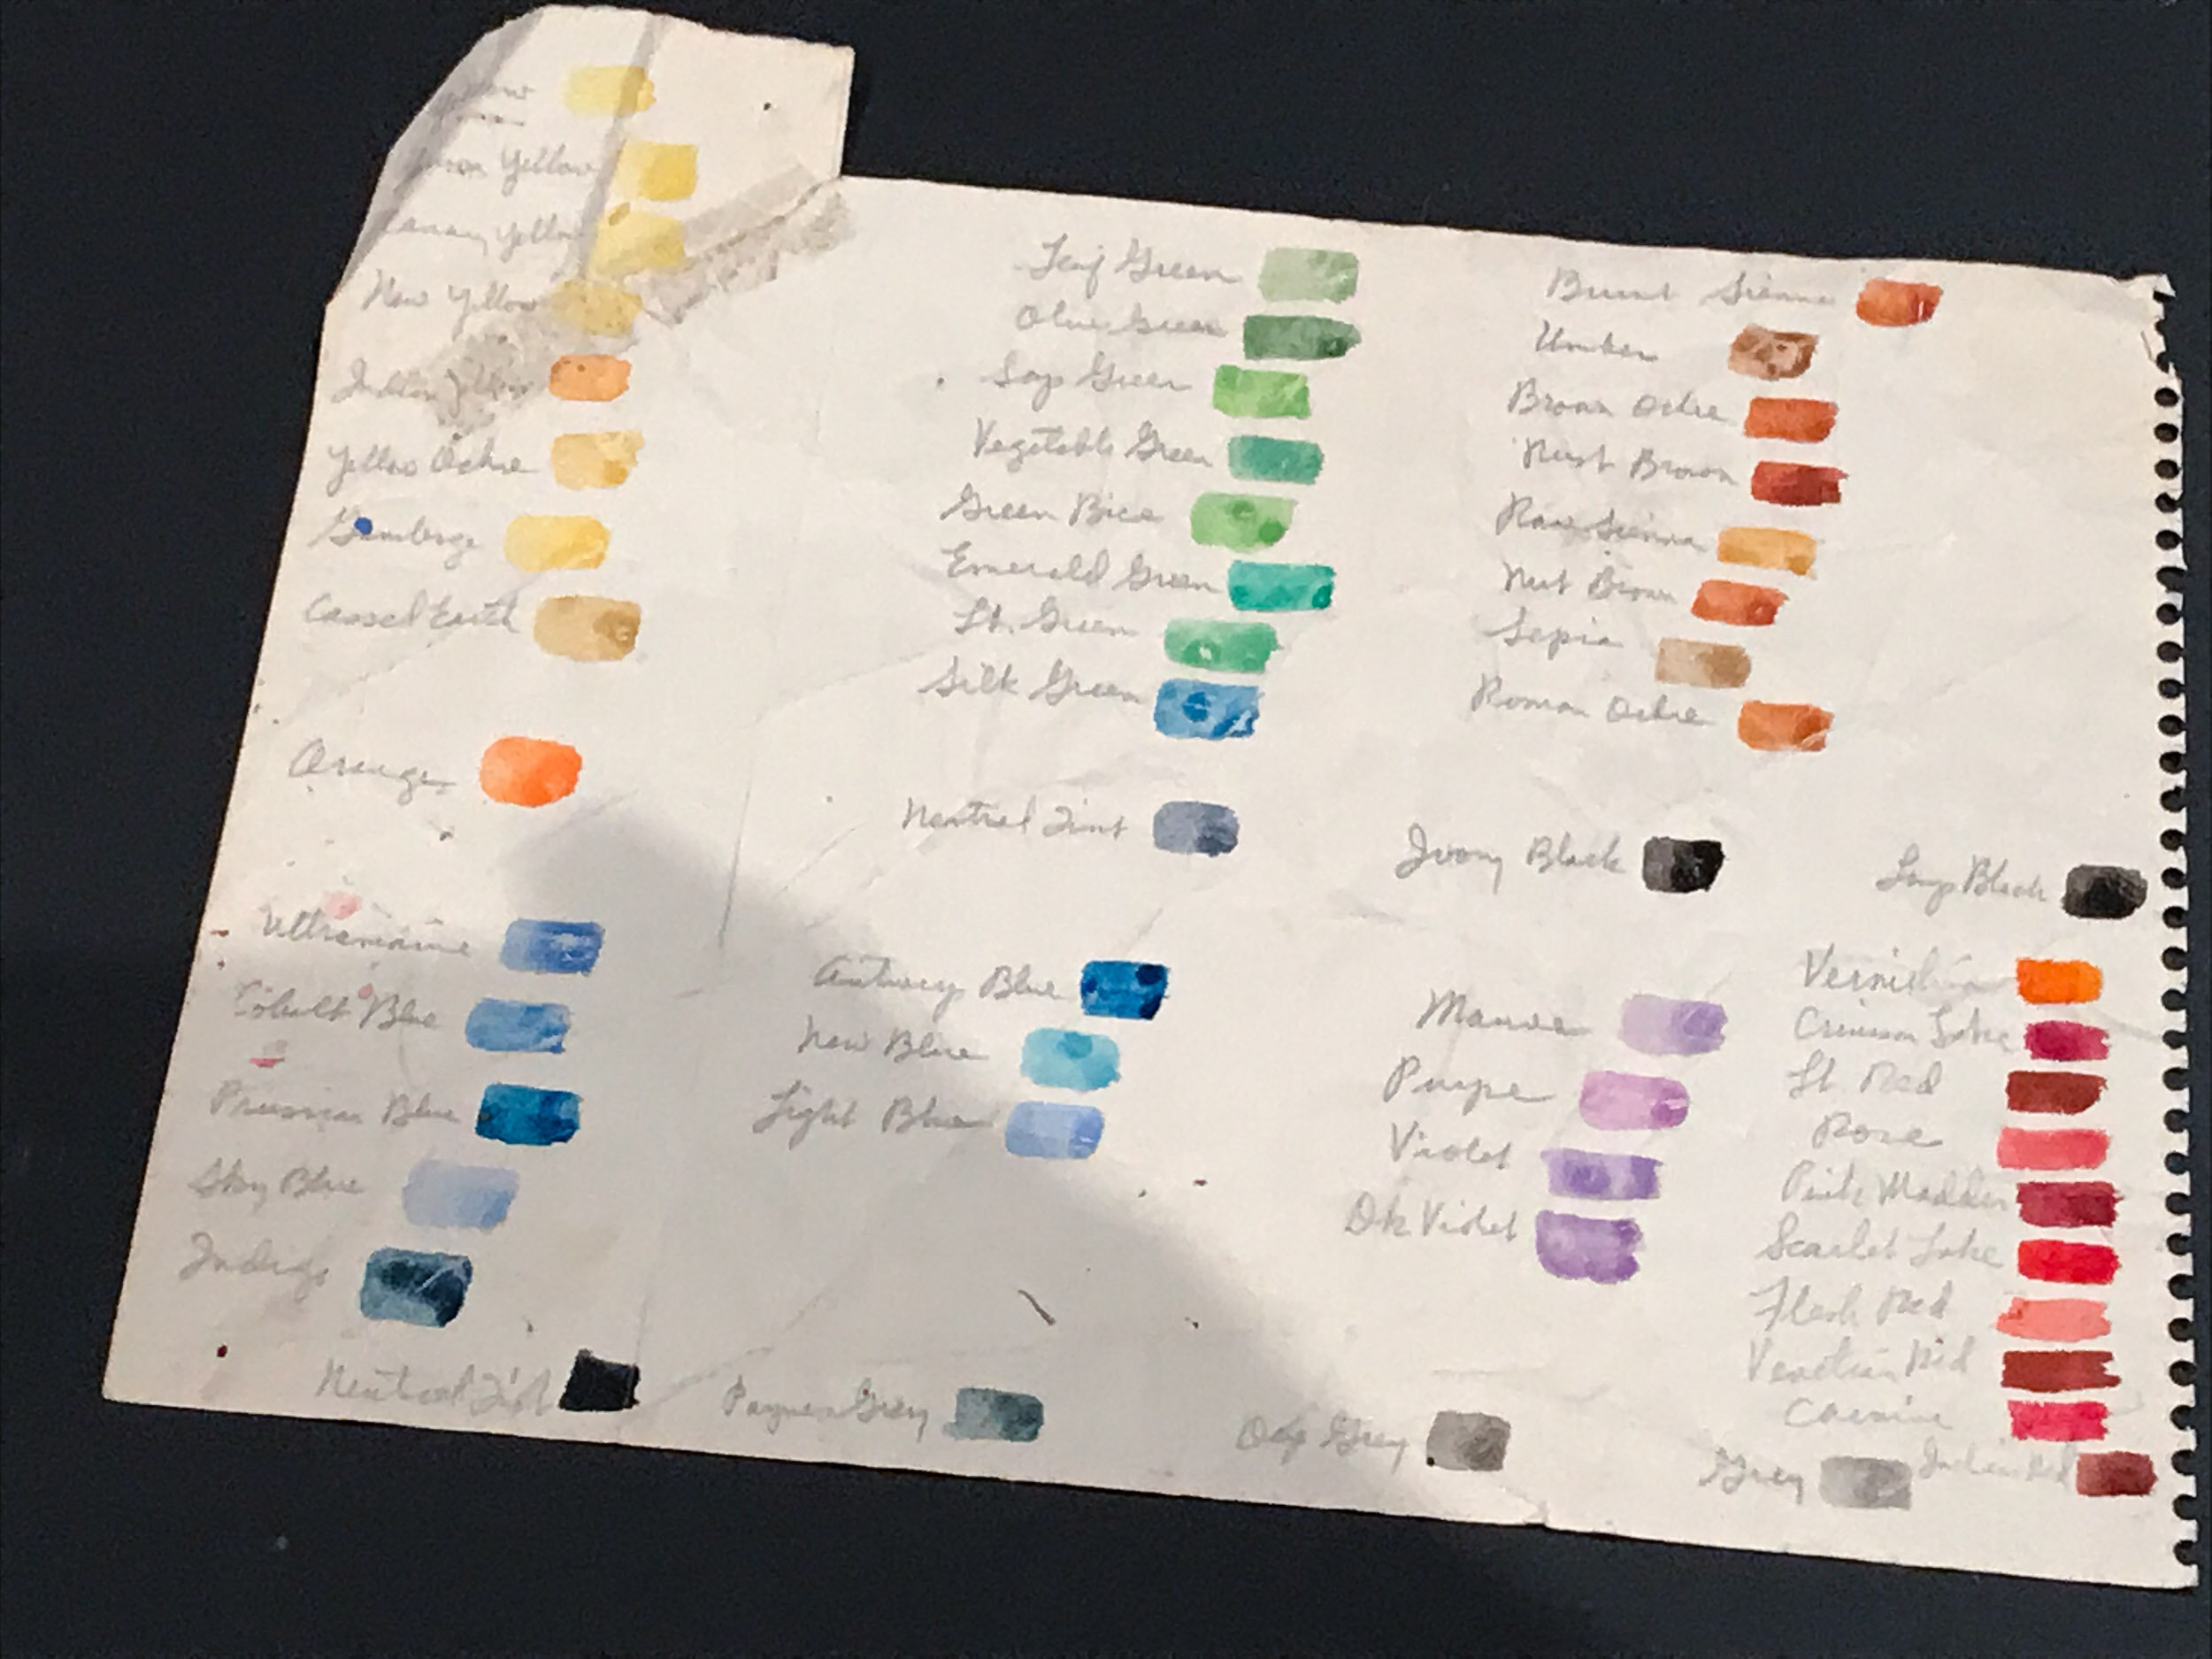 Yellow
Canary Yellow
New Yellow
Indian Yellow
Yellow Ochre
Gamboge
Cassel Earth
Orange
Ultramarine
Cobalt Blue
Prussian Blue
Sky Blue
Indigo
Neutral Tint
Leaf Green
Olive Green
Sap Green
Vegetable Green
Green Bice
Emerald Green
Lt. Green
Silk Green
Neutral Tint
Antwerp Blue
New Blue
Light Blue
Paynes Grey
Burnt Sienna
Umber
Brown Ochre
Rust Brown
Raw Sienna
Nut Brown
Sepia
Roman Ochre
Ivory Black
Mauve
Purpe
Violet
Dk Violet
Grey
Lamp Black
Crimson Lake
Lt. Red
Rose
Pink Madder
Scarlet Lake
Flesh Red
Venetian Red
Carmine
Grey
Indian Red